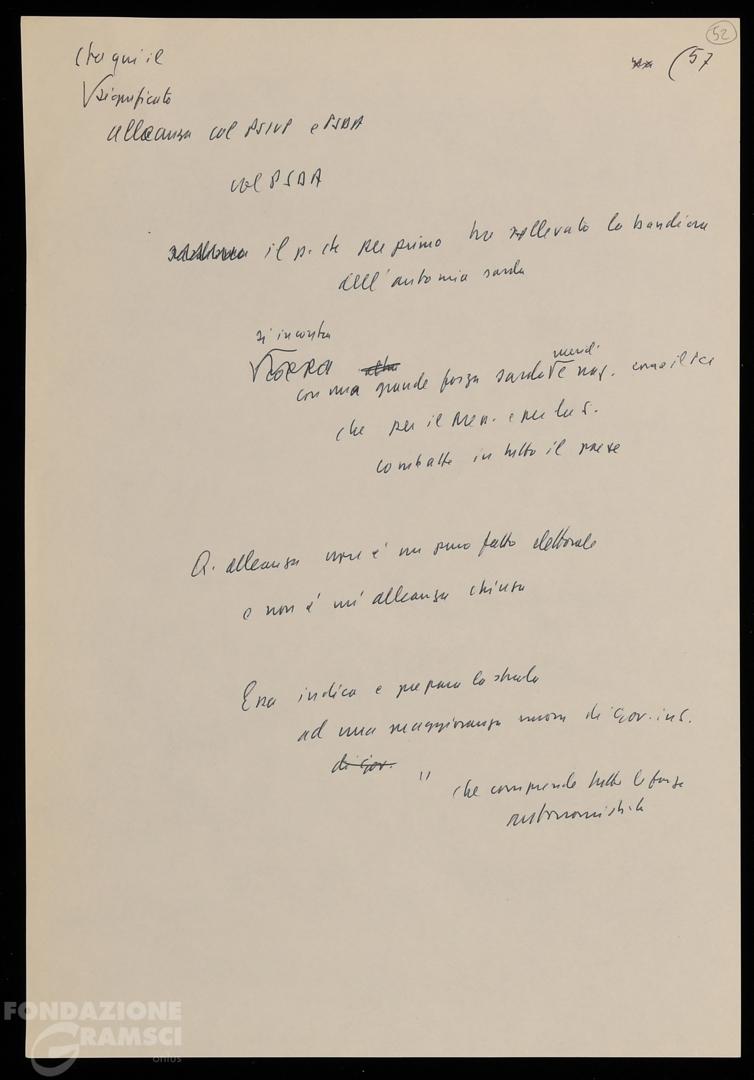 52
(57
Sta qui il
significato
alleanza col PSIUP e PSDA
col PSDA
il p. che per primo ha sollevato la bandiera
dell'autonomia sarda
si incontra
con una grande forza sarda e naz. come il PCI
che per il Mez. e per la S.
combatte in tutto il paese
Q. alleanza non è un puro fatto elettorale
e non è un'alleanza chiusa
Essa indica e prepara la strada
ad una maggioranza nuova di Gov. in S.
di Gov.
" che comprenda tutte le forze
autonomistiche
FONDAZIONE
GRAMSCI
onlus